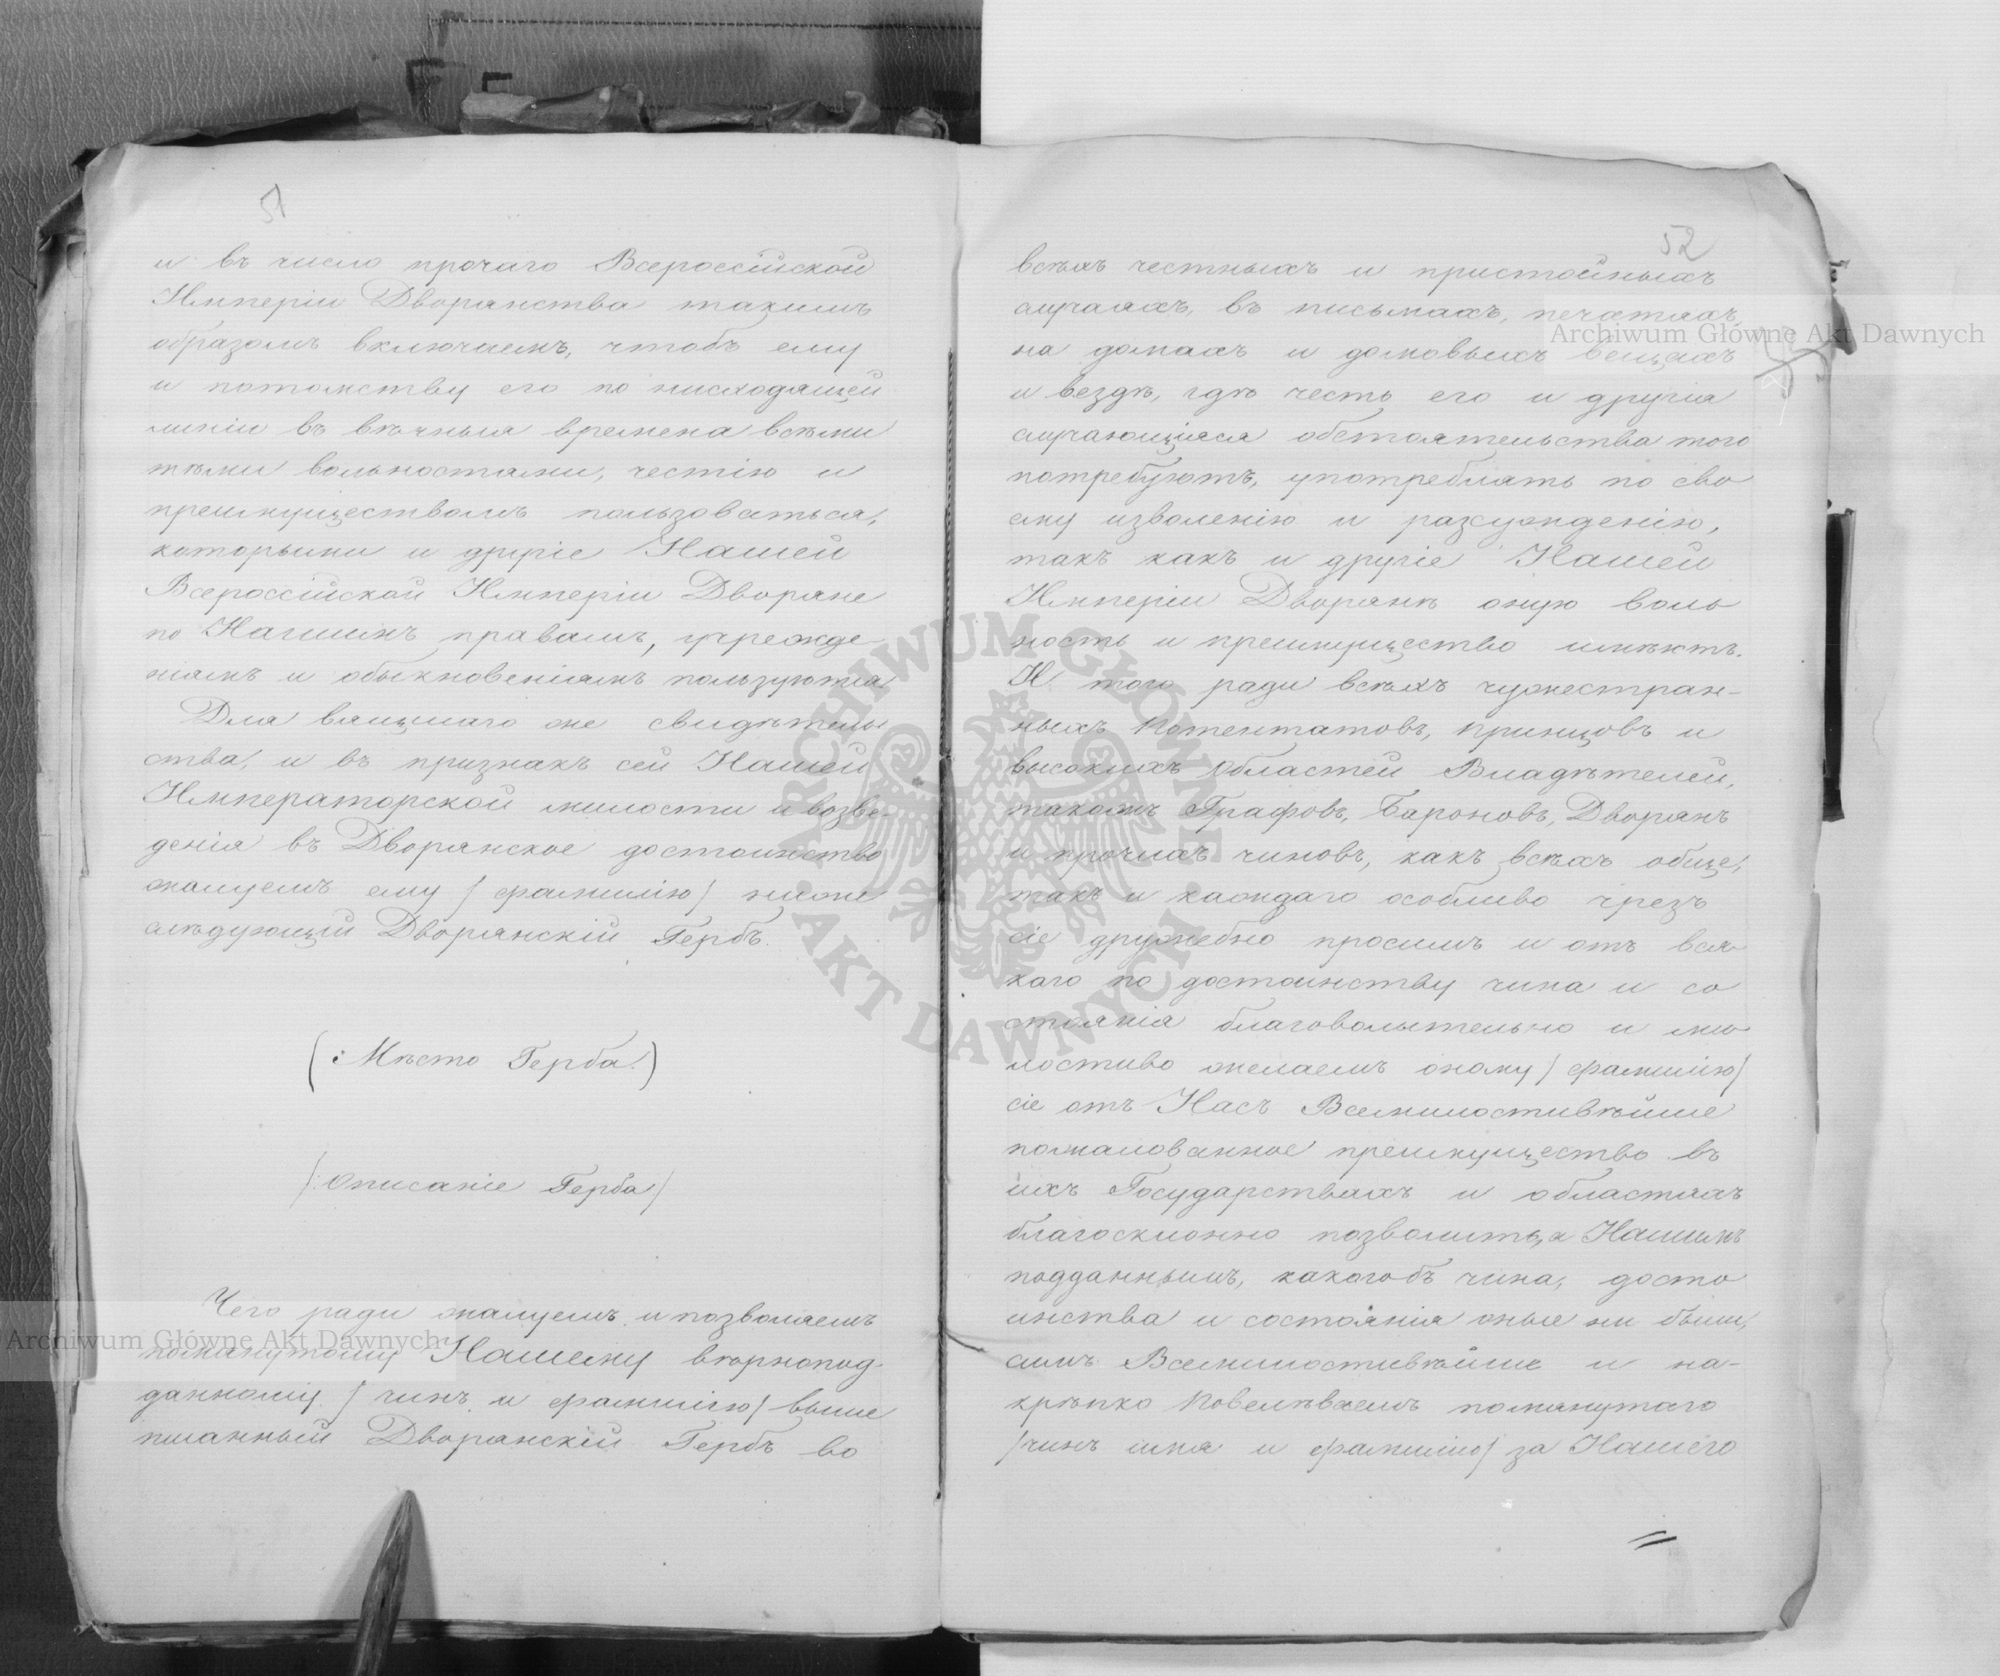 51
и въ число прочаго Всероссійской
Имперіи Дворянства такимъ
образомъ включаемъ, чтобъ ему
и потомству его по нисходящей
линіи въ вѣчныя времена всѣми
тѣми вольностями, честію и
преимуществомъ пользоваться,
которыми и другіе Нашей
Всероссійской Имперіи Дворяне
по Нашимъ правамъ, учрежде
ніямъ и обыкновеніямъ пользуются
Для вящшаго же свидѣтель
ства, и въ признакъ сей Нашей
Императорской милости и возве-
денія въ Дворянское достоинство
жалуемъ ему / фамилію / ниже
слѣдующій Дворянскій Гербъ.
(: Мѣсто Герба.)
/: Описаніе Герба /
Чего ради жалуемъ и позволяемъ
помянутому Нашему вѣрнопод-
данному / чинъ и фамилію / выше
писанный Дворянскій Гербъ во
52
всѣхъ честныхъ и пристойныхъ
случаяхъ, въ письмахъ, печатяхъ,
на домахъ и домовыхъ вещахъ
и вездѣ, гдѣ честь его и другія
случающіяся обстоятельства того
потребуютъ, употреблять по сво
ему изволенію и разсужденію,
такъ какъ и другіе Нашей
Имперіи Дворянѣ оную воль
ность и преимущество имѣютъ.
И того ради всѣхъ чужестран-
ныхъ Потентатовъ, Принцовъ и
высокихъ Областей Владѣтелей,
такожъ Графовъ, Бароновъ, Дворянъ
и прочихъ чиновъ, какъ всѣхъ обще,
такъ и каждаго особливо чрезъ
сіе дружебно просимъ и отъ вся-
каго по достоинству чина и со
стоянія благоволительно и ми-
лостиво желаемъ оному / фамилію /
сіе отъ Насъ Всемилостивѣйше
пожалованное преимущество въ
ихъ Государствахъ и областяхъ
благосклонно позволить, а Нашимъ
подданнымъ, какогобъ чина, досто
инства и состоянія оные ни были,
симъ Всемилостивѣйше и на-
крѣпко Повелѣваемъ помянутаго
/ чинъ имя и фамилію / за Нашего
Archiwum Główne Akt Dawnych
Archiwum Główne Akt Dawnych
ARCHIWUM GŁÓWNE
AKT DAWNYCH